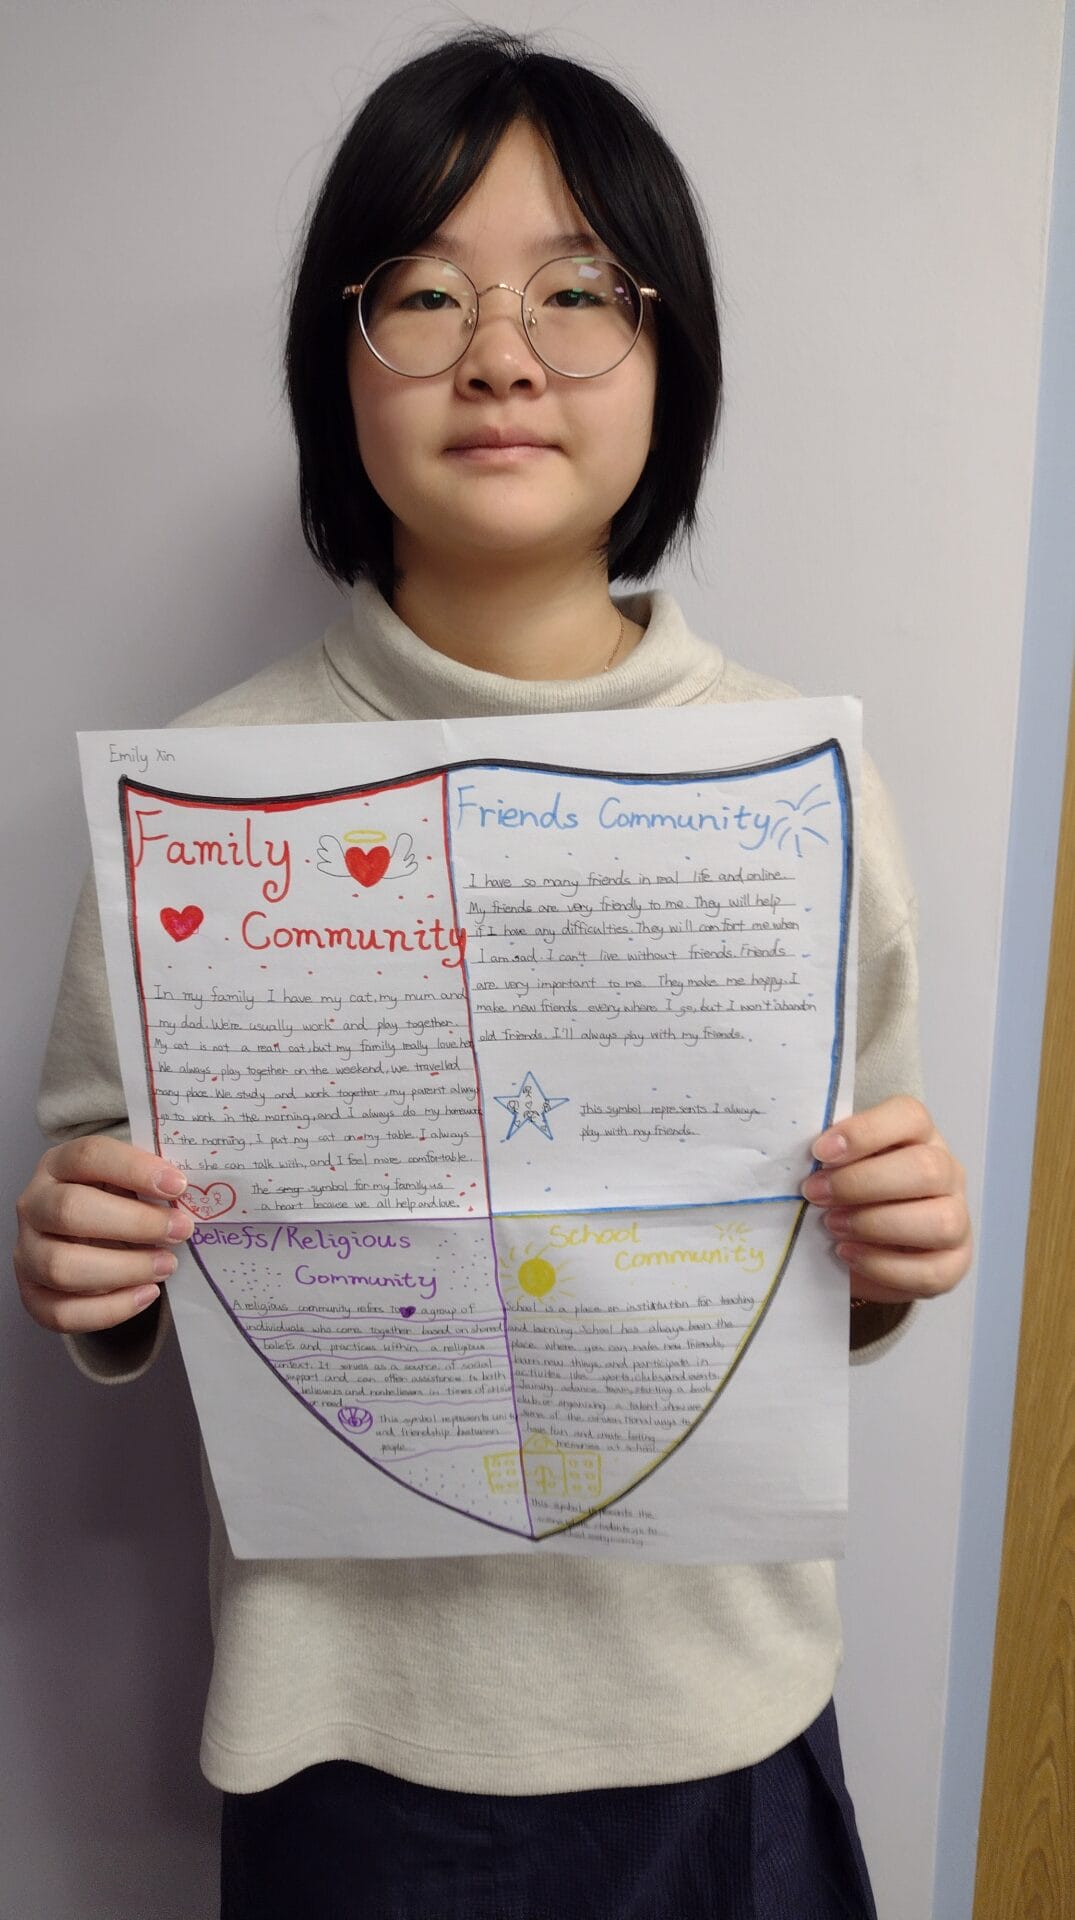 Emily Xin
Family
Community
In my family I have my cat, my mum and
my dad. We're usually work and play together.
My cat is not a real cat, but my family really love her
We always play together on the weekend, we travelled
many place. We study and work together, my parent always
go to work in the morning, and I always do my homework
in the morning, I put my cat on my table. I always
think she can talk with, and I feel more comfortable.
The symbol for my family us
a heart because we all help and love.
Friends Community
I have so many friends in real life and online.
My friends are very friendly to me. They will help
if I have any difficulties. They will comfort me when
I am sad. I can't live without friends. Friends
are very important to me. They make me happy. I
make new friends everywhere I go, but I won't abandon
old friends. I'll always play with my friends.
This symbol represents I always
play with my friends.
Beliefs/Religious
Community
A religious community refers to a group of
individuals who come together based on shared
beliefs and practices within a religious
context. It serves as a source of social
support and can often assistance to both
believers and nonbelievers in times of crisis
or need.
This symbol represents unity
and friendship between
people.
School
Community
School is a place or institution for teaching
and learning. School has always been the
place where you can make new friends,
learn new things and participate in
activities like sports, clubs and events.
Joining a dance team, starting a book
club or organising a talent show are
some of the conventional ways to
have fun and create lasting
memories at school.
This symbol represents the
students go to